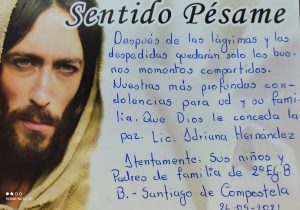 Sentido Pésame
Después de las lágrimas y las
despedidas quedarán solo los bue-
nos momentos compartidos.
Nuestras más profundas con-
dolencias para ud y su fami-
lia. Que Dios le conceda la
paz. Lic. Adriana Hernández
Atentamente: Sus niños y
Padres de familia de 2º EgB
B. - Santiago de Compostela
26-09-2021